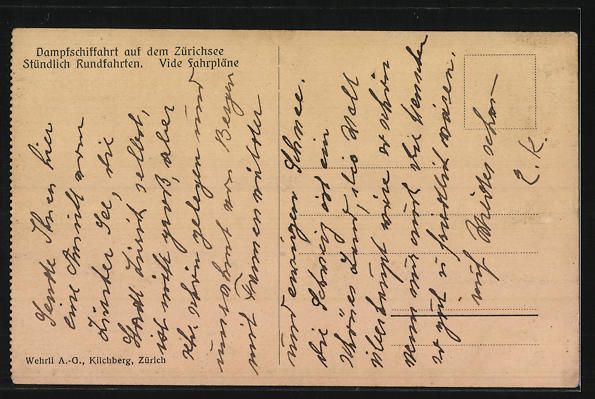 Dampfschiffahrt auf dem Zürichsee
Stündlich Rundfahrten. Vide Fahrpläne
Sende Ihnen hier
eine Ansicht vom
Züricher See, die
Stadt Zürich selbst,
ist nicht groß, aber
sehr schön gelegen und
umrahmt von Bergen
mit Tannenwälder
und ewigen Schnee.
die Schweiz ist ein
schönes Land, die Welt
überhaupt wäre so schön
wenn nur auch die Menschen
so gut u. friedlich wären.
auf Wiedersehen
L. K.
Wehrli A.-G., Kilchberg, Zürich